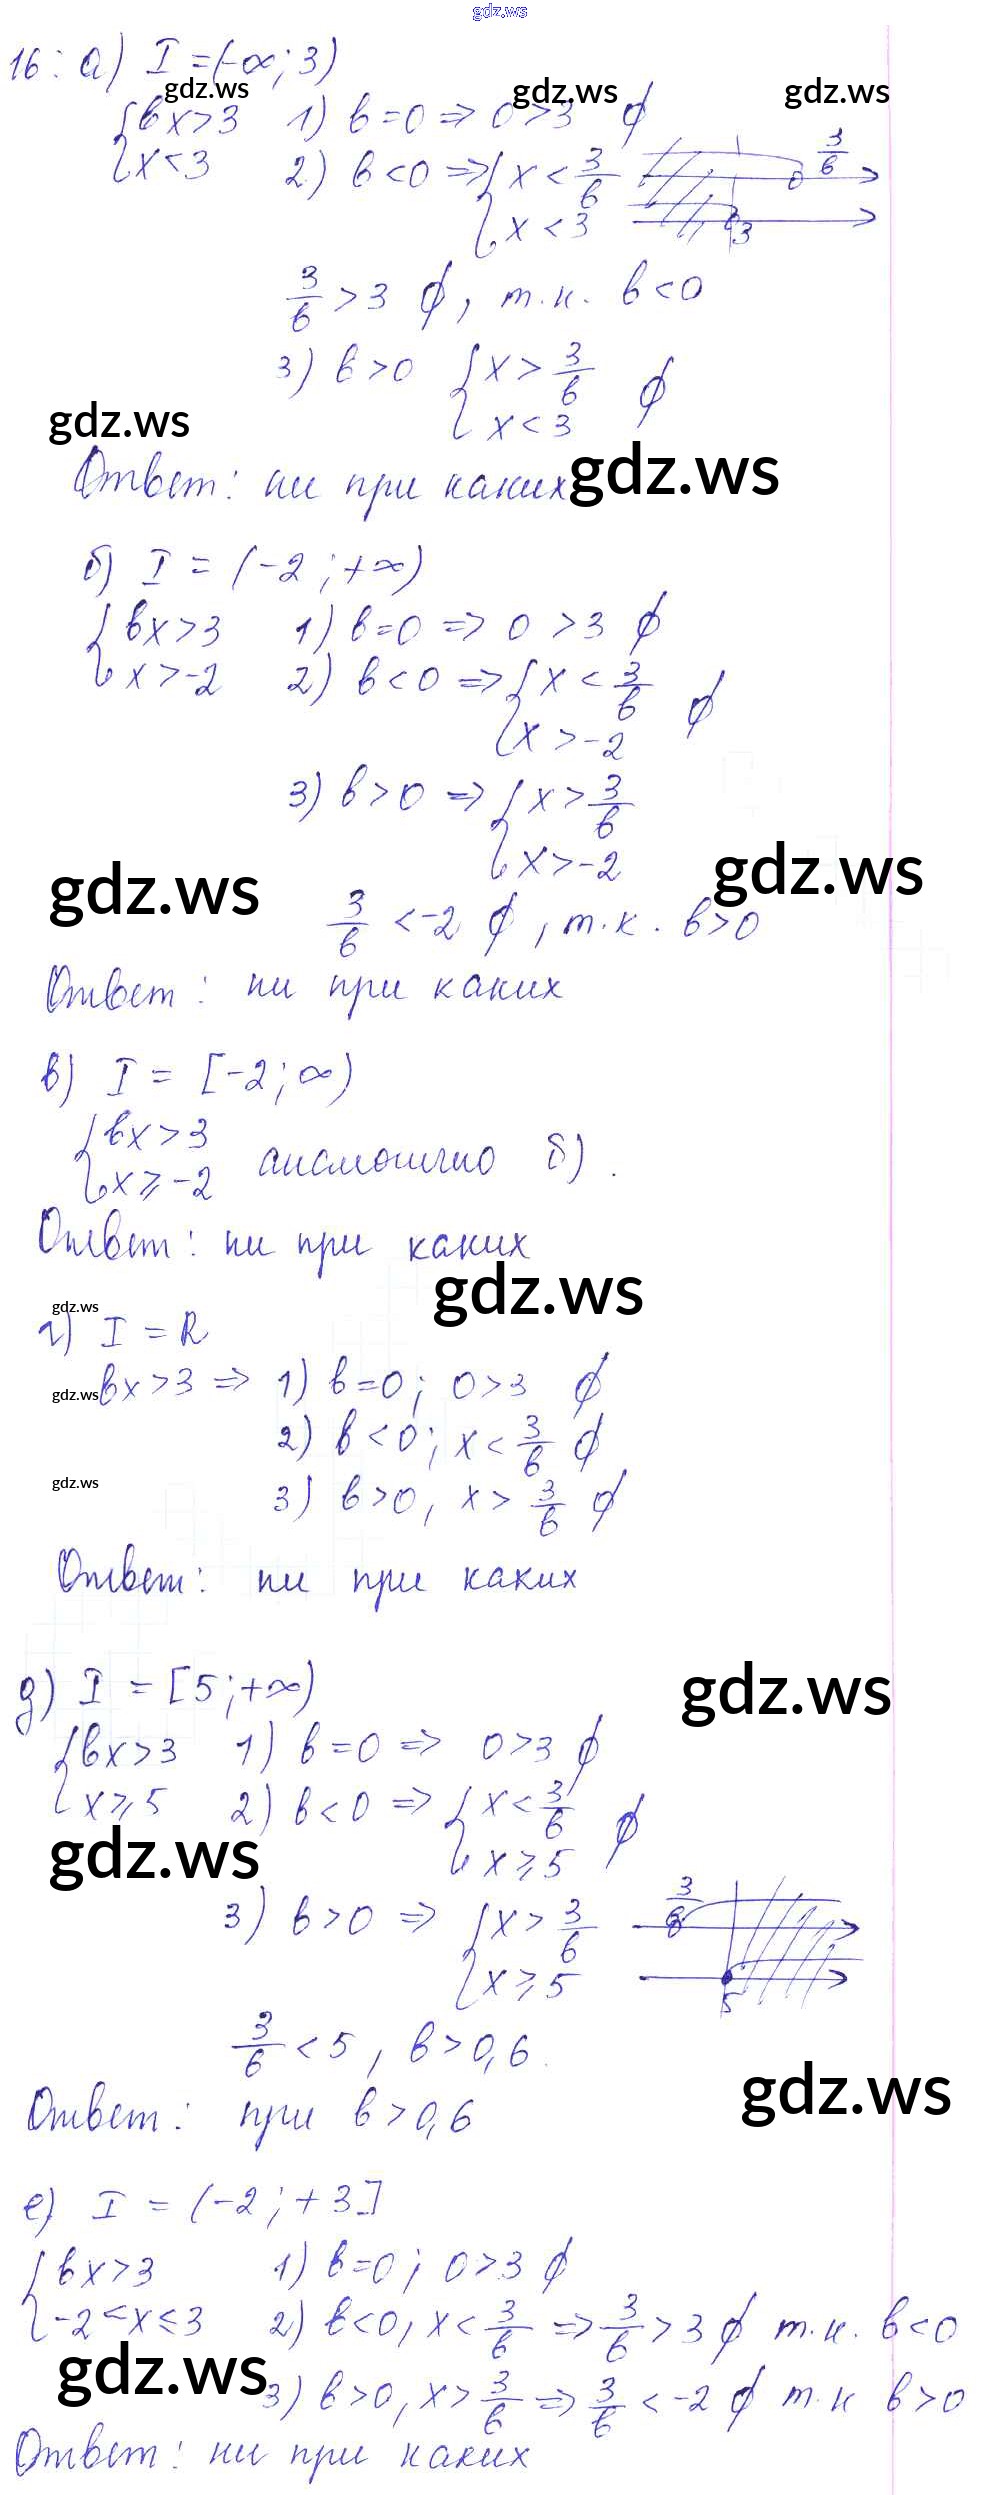 gdz.ws
16. а) I = (-∞; 3)
gdz.ws gdz.ws gdz.ws
{bx > 3 1) b = 0 => 0 > 3 ∅
{x < 3 2) b < 0 => {x < 3/b 3/b
{x < 3 3
3/b > 3 ∅, т.к. b < 0
3) b > 0 {x > 3/b ∅
{x < 3
gdz.ws
Ответ: ни при каких gdz.ws
б) I = (-2; +∞)
{bx > 3 1) b = 0 => 0 > 3 ∅
{x > -2 2) b < 0 => {x < 3/b ∅
{x > -2
3) b > 0 => {x > 3/b
{x > -2
gdz.ws gdz.ws
3/b < -2 ∅, т.к. b > 0
Ответ: ни при каких
в) I = [-2; ∞)
{bx > 3
{x ≥ -2 аналогично б).
Ответ: ни при каких
gdz.ws
gdz.ws
г) I = R
gdz.ws
bx > 3 => 1) b = 0; 0 > 3 ∅
2) b < 0; x < 3/b ∅
gdz.ws
3) b > 0, x > 3/b ∅
Ответ: ни при каких
д) I = [5; +∞)
gdz.ws
{bx > 3 1) b = 0 => 0 > 3 ∅
{x ≥ 5 2) b < 0 => {x < 3/b ∅
{x ≥ 5
gdz.ws
3) b > 0 => {x > 3/b 3/b
{x ≥ 5 5
3/b < 5, b > 0,6.
gdz.ws
Ответ: при b > 0,6
е) I = (-2; +3]
{bx > 3 1) b = 0; 0 > 3 ∅
{-2 < x ≤ 3 2) b < 0, x < 3/b => 3/b > 3 ∅ т.к. b < 0
gdz.ws
3) b > 0, x > 3/b => 3/b < -2 ∅ т.к b > 0
Ответ: ни при каких